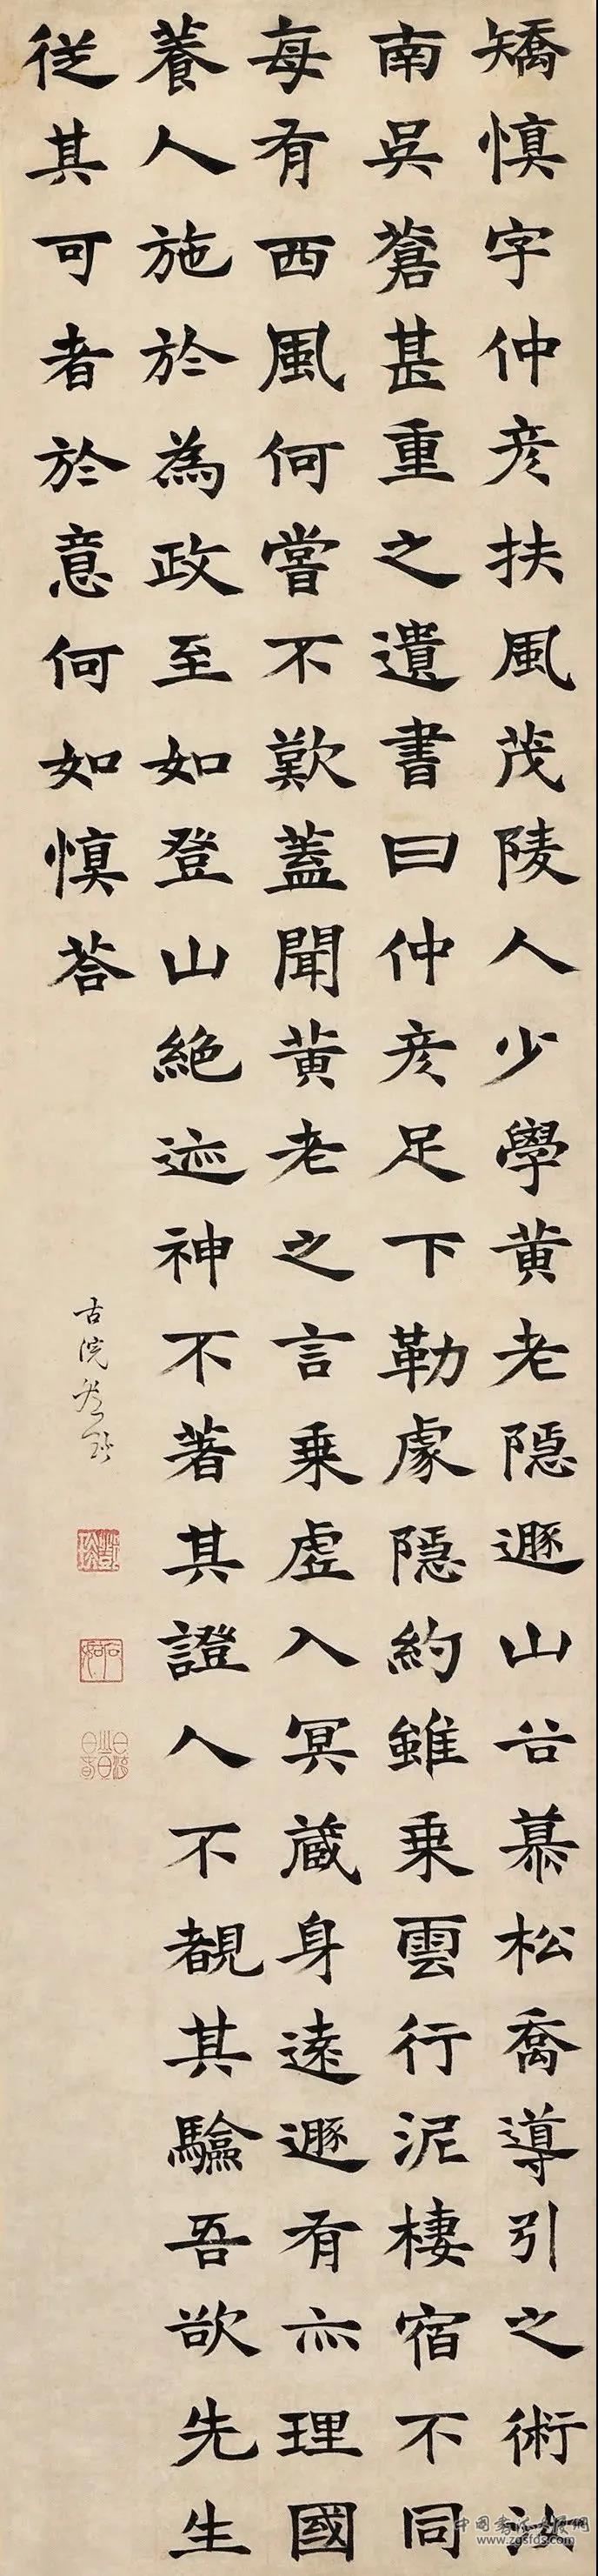 矯慎字仲彦扶風茂陵人少學黄老隱遯山谷慕松喬導引之術汝
南吳蒼甚重之遺書曰仲彦足下勤處隱約雖乗雲行泥棲宿不同
每有西風何嘗不歎蓋聞黄老之言乗虛入冥藏身遠遯有亦理國
養人施於為政至如登山絶迹神不著其證人不覩其驗吾欲先生
從其可者於意何如慎荅
古浣鄧琰
鄧琰
石如
www.zgsfds.com